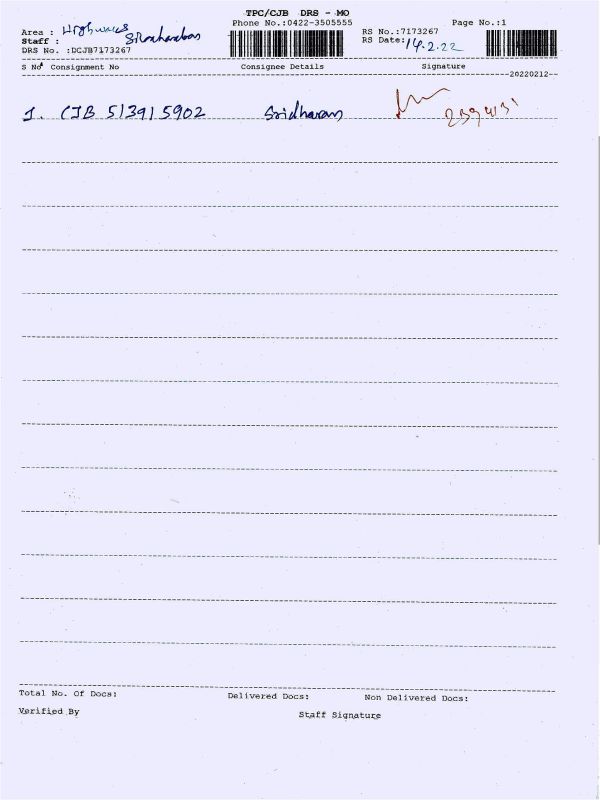 TPC/CJB DRS - MO
Phone No.:0422-3505555
Page No.:1
Area : Highways
Staff :
DRS No. :DCJB7173267
RS No.:7173267
RS Date: 14.2.22
S No Consignment No Consignee Details Signature
20220212
1. CJB 513915902 Sridharan
Total No. Of Docs: Delivered Docs: Non Delivered Docs:
Verified By Staff Signature